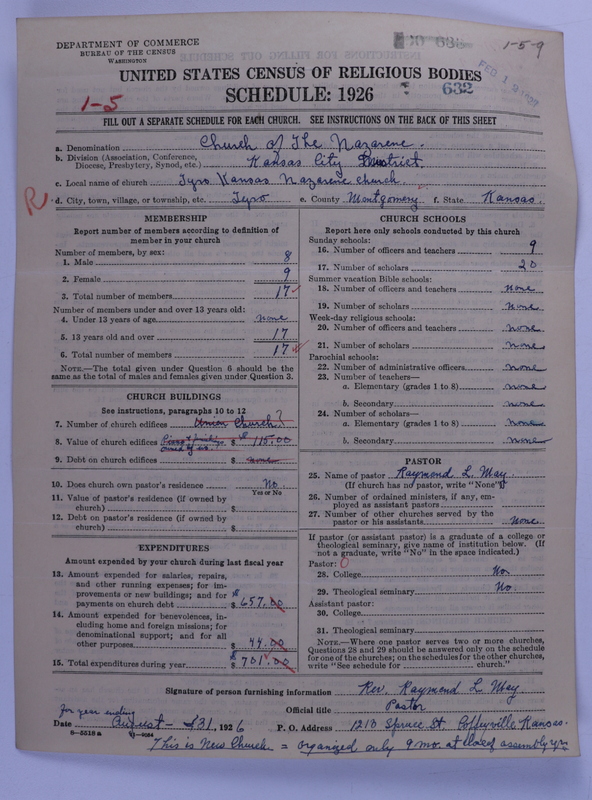 DEPARTMENT OF COMMERCE
BUREAU OF THE CENSUS
WASHINGTON
1-5-9
632
1-5
UNITED STATES CENSUS OF RELIGIOUS BODIES
SCHEDULE: 1926
FILL OUT A SEPARATE SCHEDULE FOR EACH CHURCH. SEE INSTRUCTIONS ON THE BACK OF THIS SHEET
a. Denomination Church of The Nazarene.
b. Division (Association, Conference, Diocese, Presbytery, Synod, etc.) Kansas City District.
c. Local name of church Tyro Kansas Nazarene Church.
R. d. City, town, village, or township, etc. Tyro e. County Montgomery f. State Kansas.
MEMBERSHIP
Report number of members according to definition of
member in your church
Number of members, by sex:
1. Male 8
2. Female 9
3. Total number of members 17
Number of members under and over 13 years old:
4. Under 13 years of age none
5. 13 years old and over 17
6. Total number of members 17
NOTE.—The total given under Question 6 should be
same as the total of males and females given under Question 3.
CHURCH BUILDINGS
See instructions, paragraphs 10 to 12
7. Number of church edifices Union Church?
8. Value of church edifices owned by us. $ 115.00
9. Debt on church edifices $ none
10. Does church own pastor's residence No.
Yes or No
11. Value of pastor's residence (if owned by
church) $
12. Debt on pastor's residence (if owned by
church) $
EXPENDITURES
Amount expended by your church during last fiscal year
13. Amount expended for salaries, repairs,
and other running expenses; for im-
provements or new buildings; and for
payments on church debt $ 657.00
14. Amount expended for benevolences, in-
cluding home and foreign missions; for
denominational support; and for all
other purposes $ 44.00
15. Total expenditures during year $ 701.00
CHURCH SCHOOLS
Report here only schools conducted by this church
Sunday schools:
16. Number of officers and teachers 9
17. Number of scholars 20
Summer vacation Bible schools:
18. Number of officers and teachers none
19. Number of scholars none
Week-day religious schools:
20. Number of officers and teachers none
21. Number of scholars none
Parochial schools:
22. Number of administrative officers none
23. Number of teachers—
a. Elementary (grades 1 to 8) none
b. Secondary none
24. Number of scholars—
a. Elementary (grades 1 to 8) none
b. Secondary none
PASTOR
25. Name of pastor Raymond L. May
(If church has no pastor, write "None")
26. Number of ordained ministers, if any, em-
ployed as assistant pastors
27. Number of other churches served by the
pastor or his assistants none
If pastor (or assistant pastor) is a graduate of a college or
theological seminary, give name of institution below. (If
not a graduate, write "No" in the space indicated.)
Pastor: 0
28. College No.
29. Theological seminary No.
Assistant pastor:
30. College
31. Theological seminary
NOTE.—Where one pastor serves two or more churches,
Questions 28 and 29 should be answered only on the schedule
for one of the churches; on the schedules for the other churches,
write "See schedule for church."
Signature of person furnishing information Rev. Raymond L. May
Official title Pastor
for year ending
Date August - 31, 1926 P. O. Address 1210 Spruce St. Coffeyville Kansas.
8-5518 a
This is New Church = organized only 9 mo. at close of assembly yr.